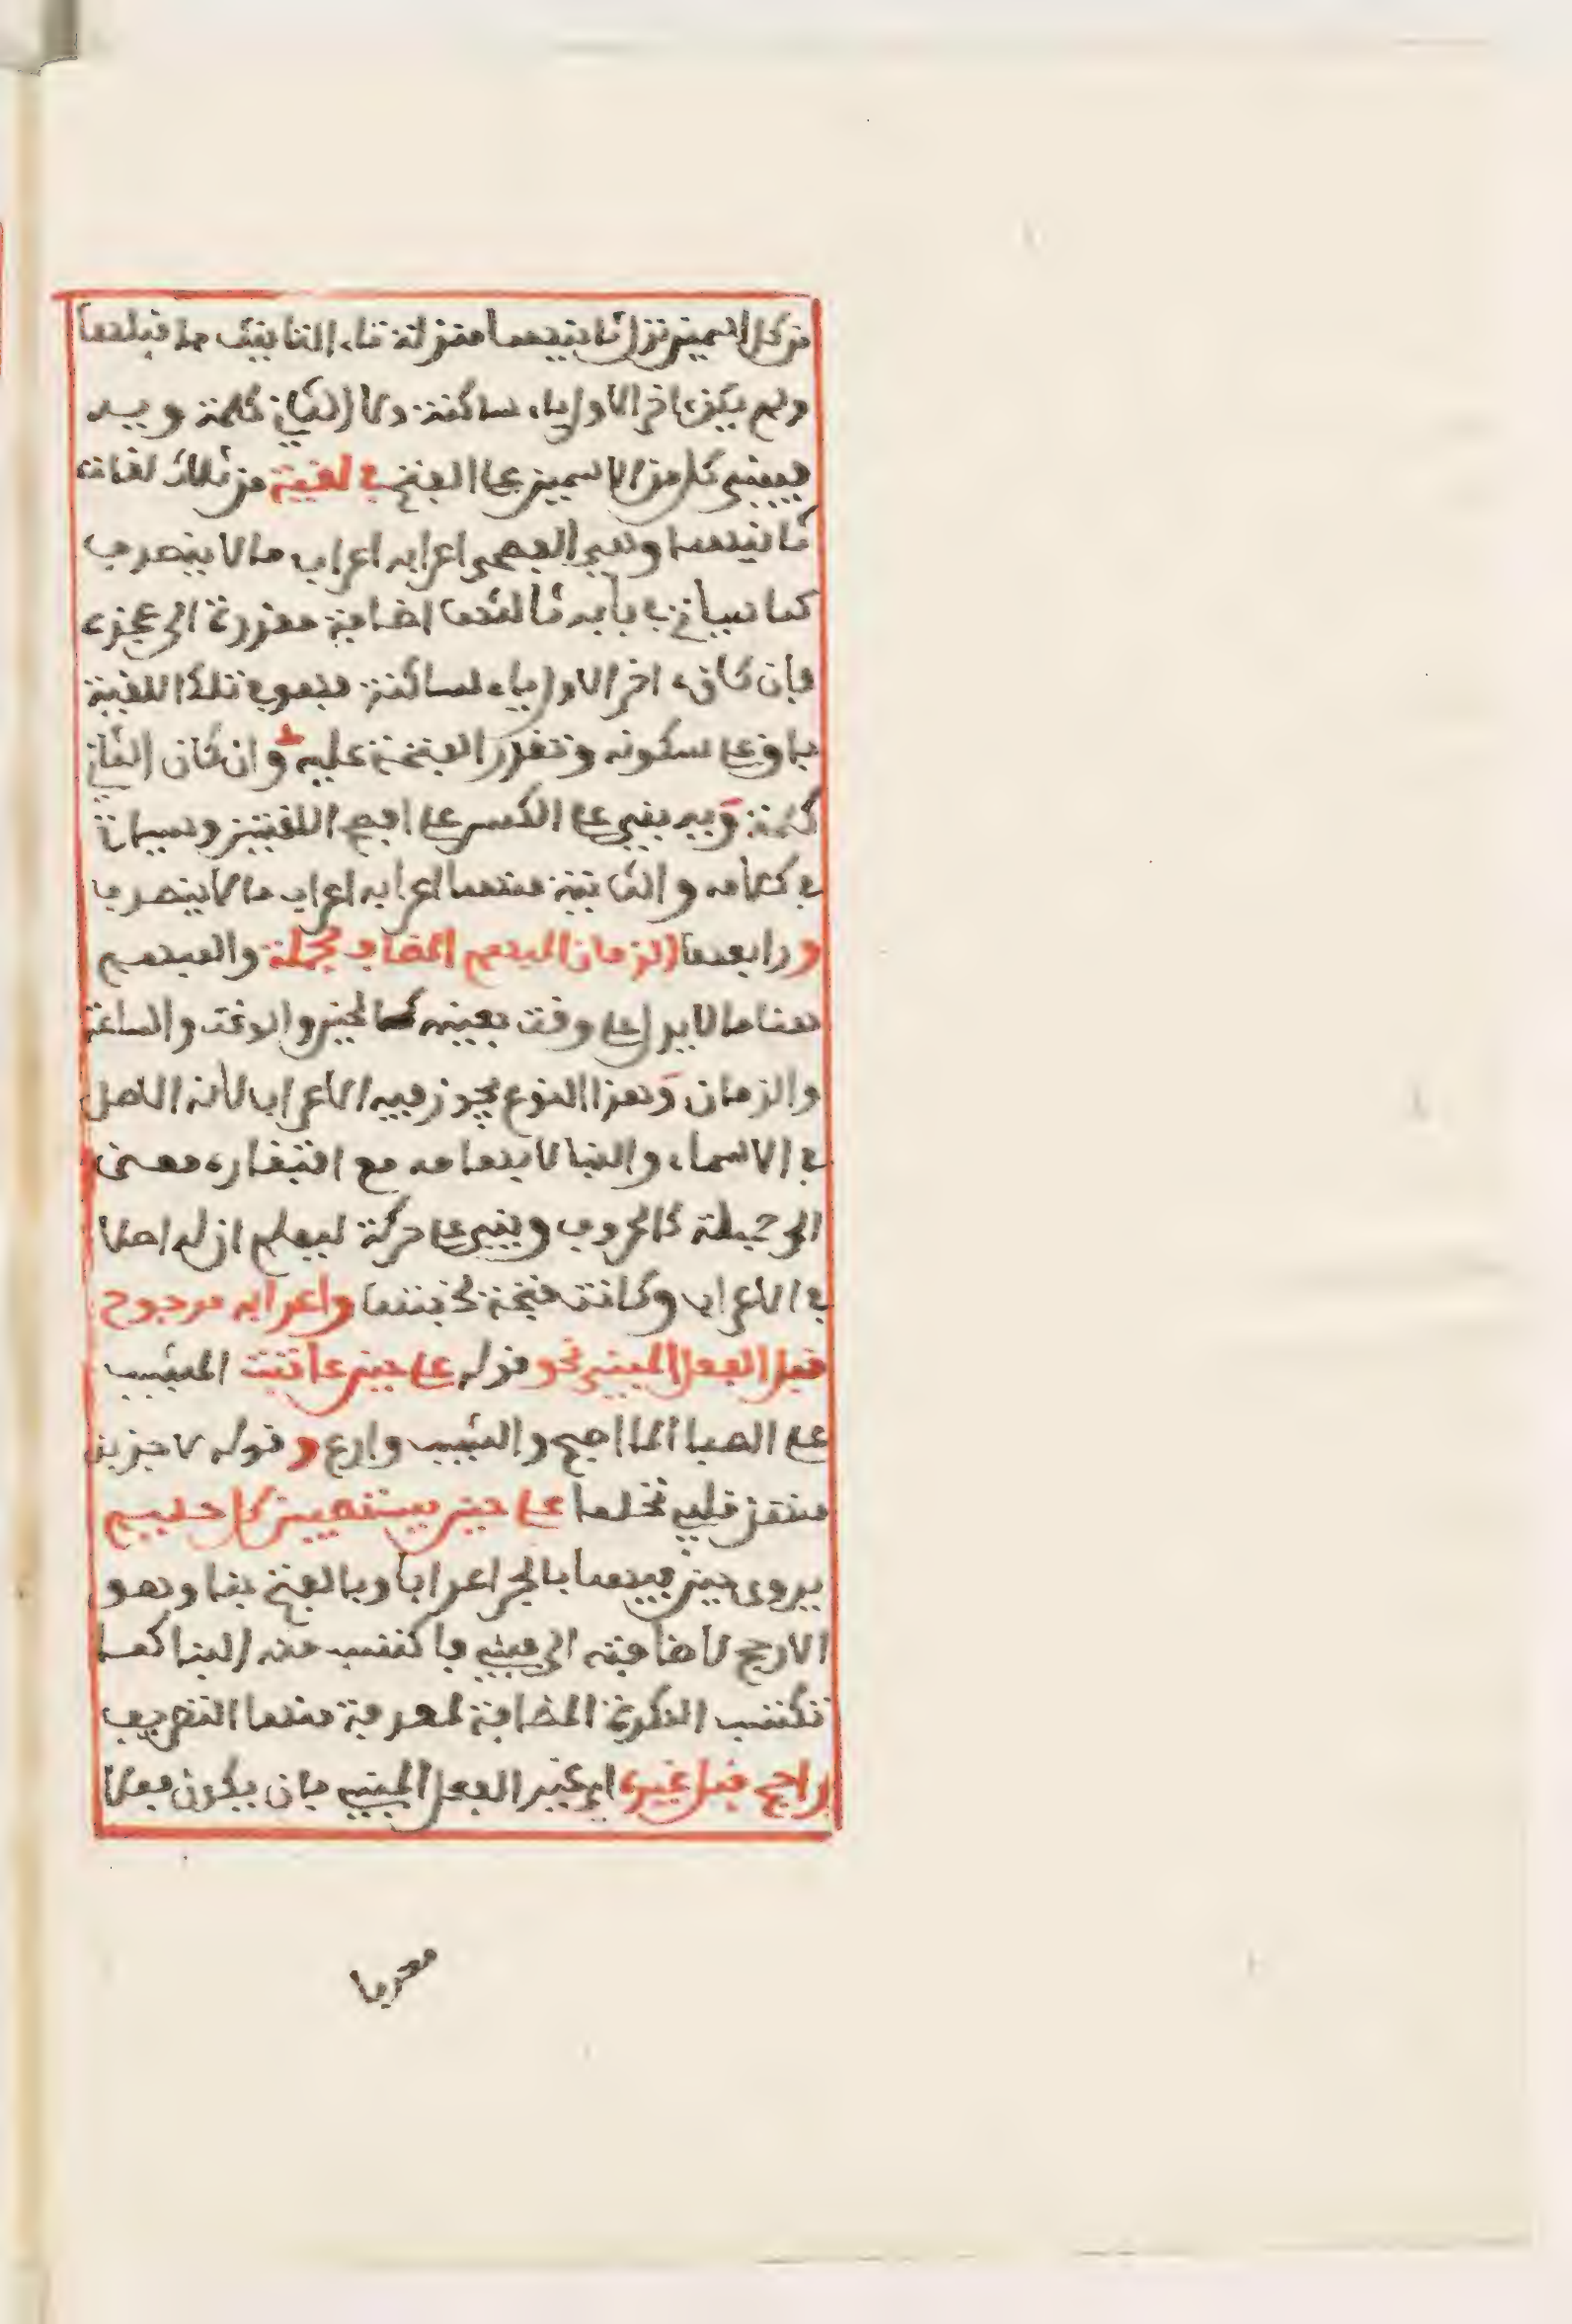 من كل اسمين نزل ثانيهما منزلة تاء التانيث مما قبلها
ولم يكن ءاخر الاول ياء ساكنة ولا الثاني كلمة ويه
فيبنى كل من الاسمين على الفتح في لغية من ثلاث لغات
ثانيهما وهي الفصحى اعرابه اعراب ما لا ينصرف
كما سياتي في بابه ثالثها اضافة مفردة الى عجزه
فان كان ءاخر الاول ياء ساكنة فهو في تلك اللغية
باق على سكونه وتقدر الفتحة عليه وان كان الثاني
كلمة ويه بني على الكسر على افصح اللغتين وسياتي
في كلامه والثانية منهما اعرابه اعراب ما لا ينصرف
و رابعها الزمان المبهم المضاف لجملة والمبهم
هنا ما لا يدل على وقت بعينه كالحين والوقت والساعة
والزمان وهذا النوع يجوز فيه الاعراب لانه الاصل
في الاسماء والبنا لابهامه مع افتقاره معنى
الى جملة كالحروف وبني على حركة ليعلم ان له اصلا
في الاعراب وكانت فتحة لخفتها واعرابه مرجوح
قبل الفعل المبني نحو قوله على حين عاتبت المشيب
على الصبا الما اصح والشيب وازع و قوله لاجذبن
منهن قلبي تحلما على حين يستصبين كل حليم
يروى حين فيهما بالجر اعرابا وبالفتح بنا وهو
الارجح لاضافته الى مبني فاكتسب منه البنا كما
تكتسب النكرة المضافة لمعرفة منها التعريف
راجح قبل غيره اي غير الفعل المبني بان يكون فعلا
معربا